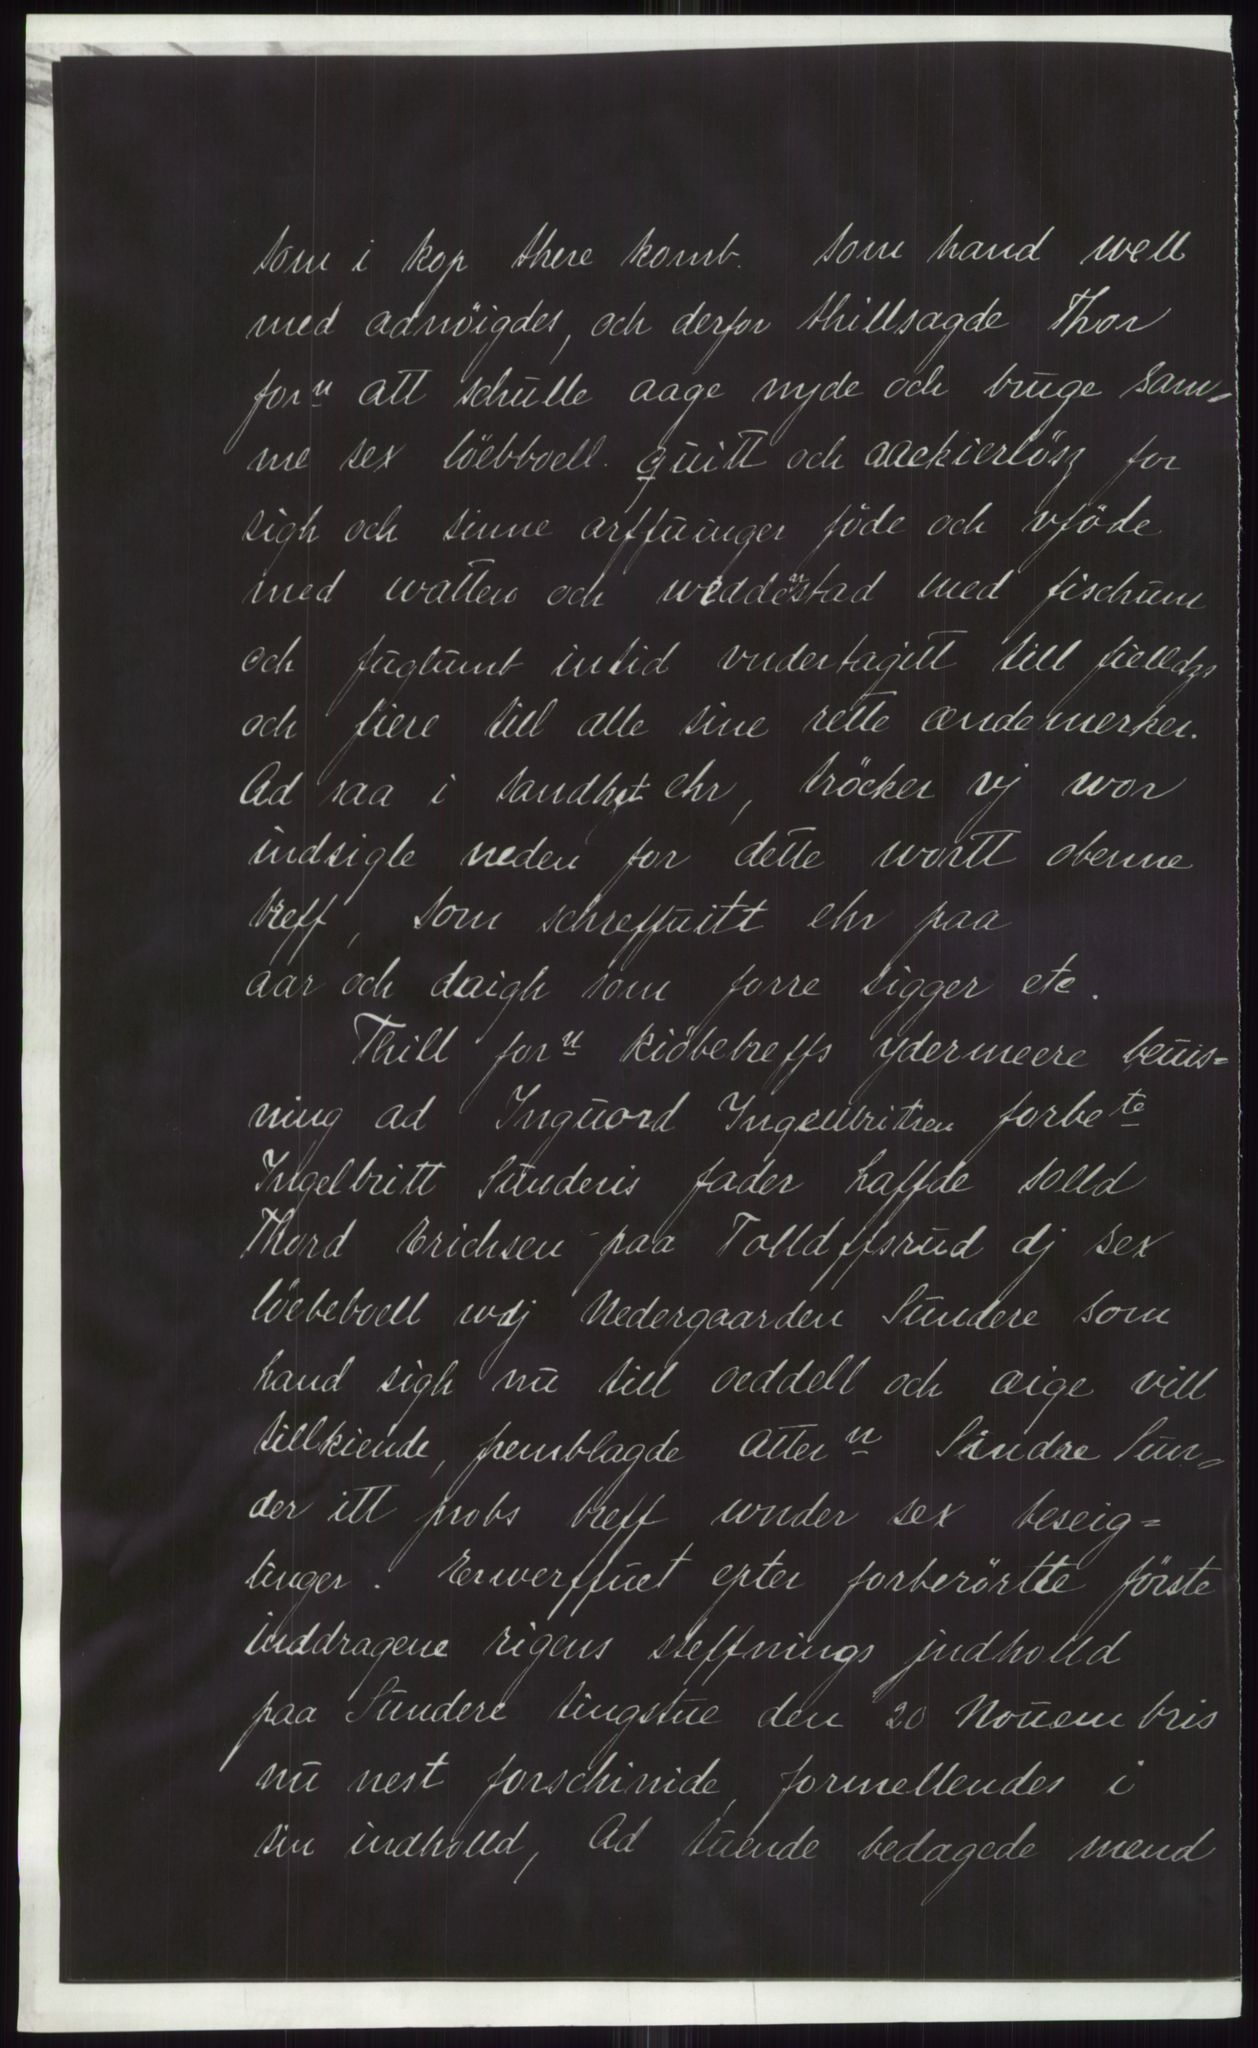 som i kop there komb. som hand well
med adnöigdes, och derfor thillsagde Thor
forⁿ att schulle aage nyde och bruge sam=
me sex löebboell. quitt och aackierlösz for
sigh och sinne arffuinger föde och vföde
med watten och weddenstad med fischum
och fuglumb intid vndertagitt till fielldzs
och fiere till alle sine rette ændemerker.
Ad saa i sandhet ehr, tröcker vj wor
indsigle neden for dette wortt obenne
breff, som schreffuitt ehr paa
aar och daigh som forre sigger etc.
Thill forⁿ kiöbebreffs ydermeere beuis=
ning ad Inguord Ingellbritsen forbeᵗᵉ
Ingelbritt Sunderis fader haffde solld
Thord Erichsen paa Tolldffsrud dj sex
löebeboell wdj Nedergaarden Sundere som
hand sigh nu till oeddell och æige vill
tillkiende, fremblagde atterⁿ Sindre Sun=
der itt probs breff wnder sex beseig=
linger. Erwerffuet epter forberörtte förste
inddragene rigens steffnings jndholld
paa Sundere tingstue den 20 Nouembris
nu nest forschinide, formellendes i
sin indholld, Ad tuende bedagede mend